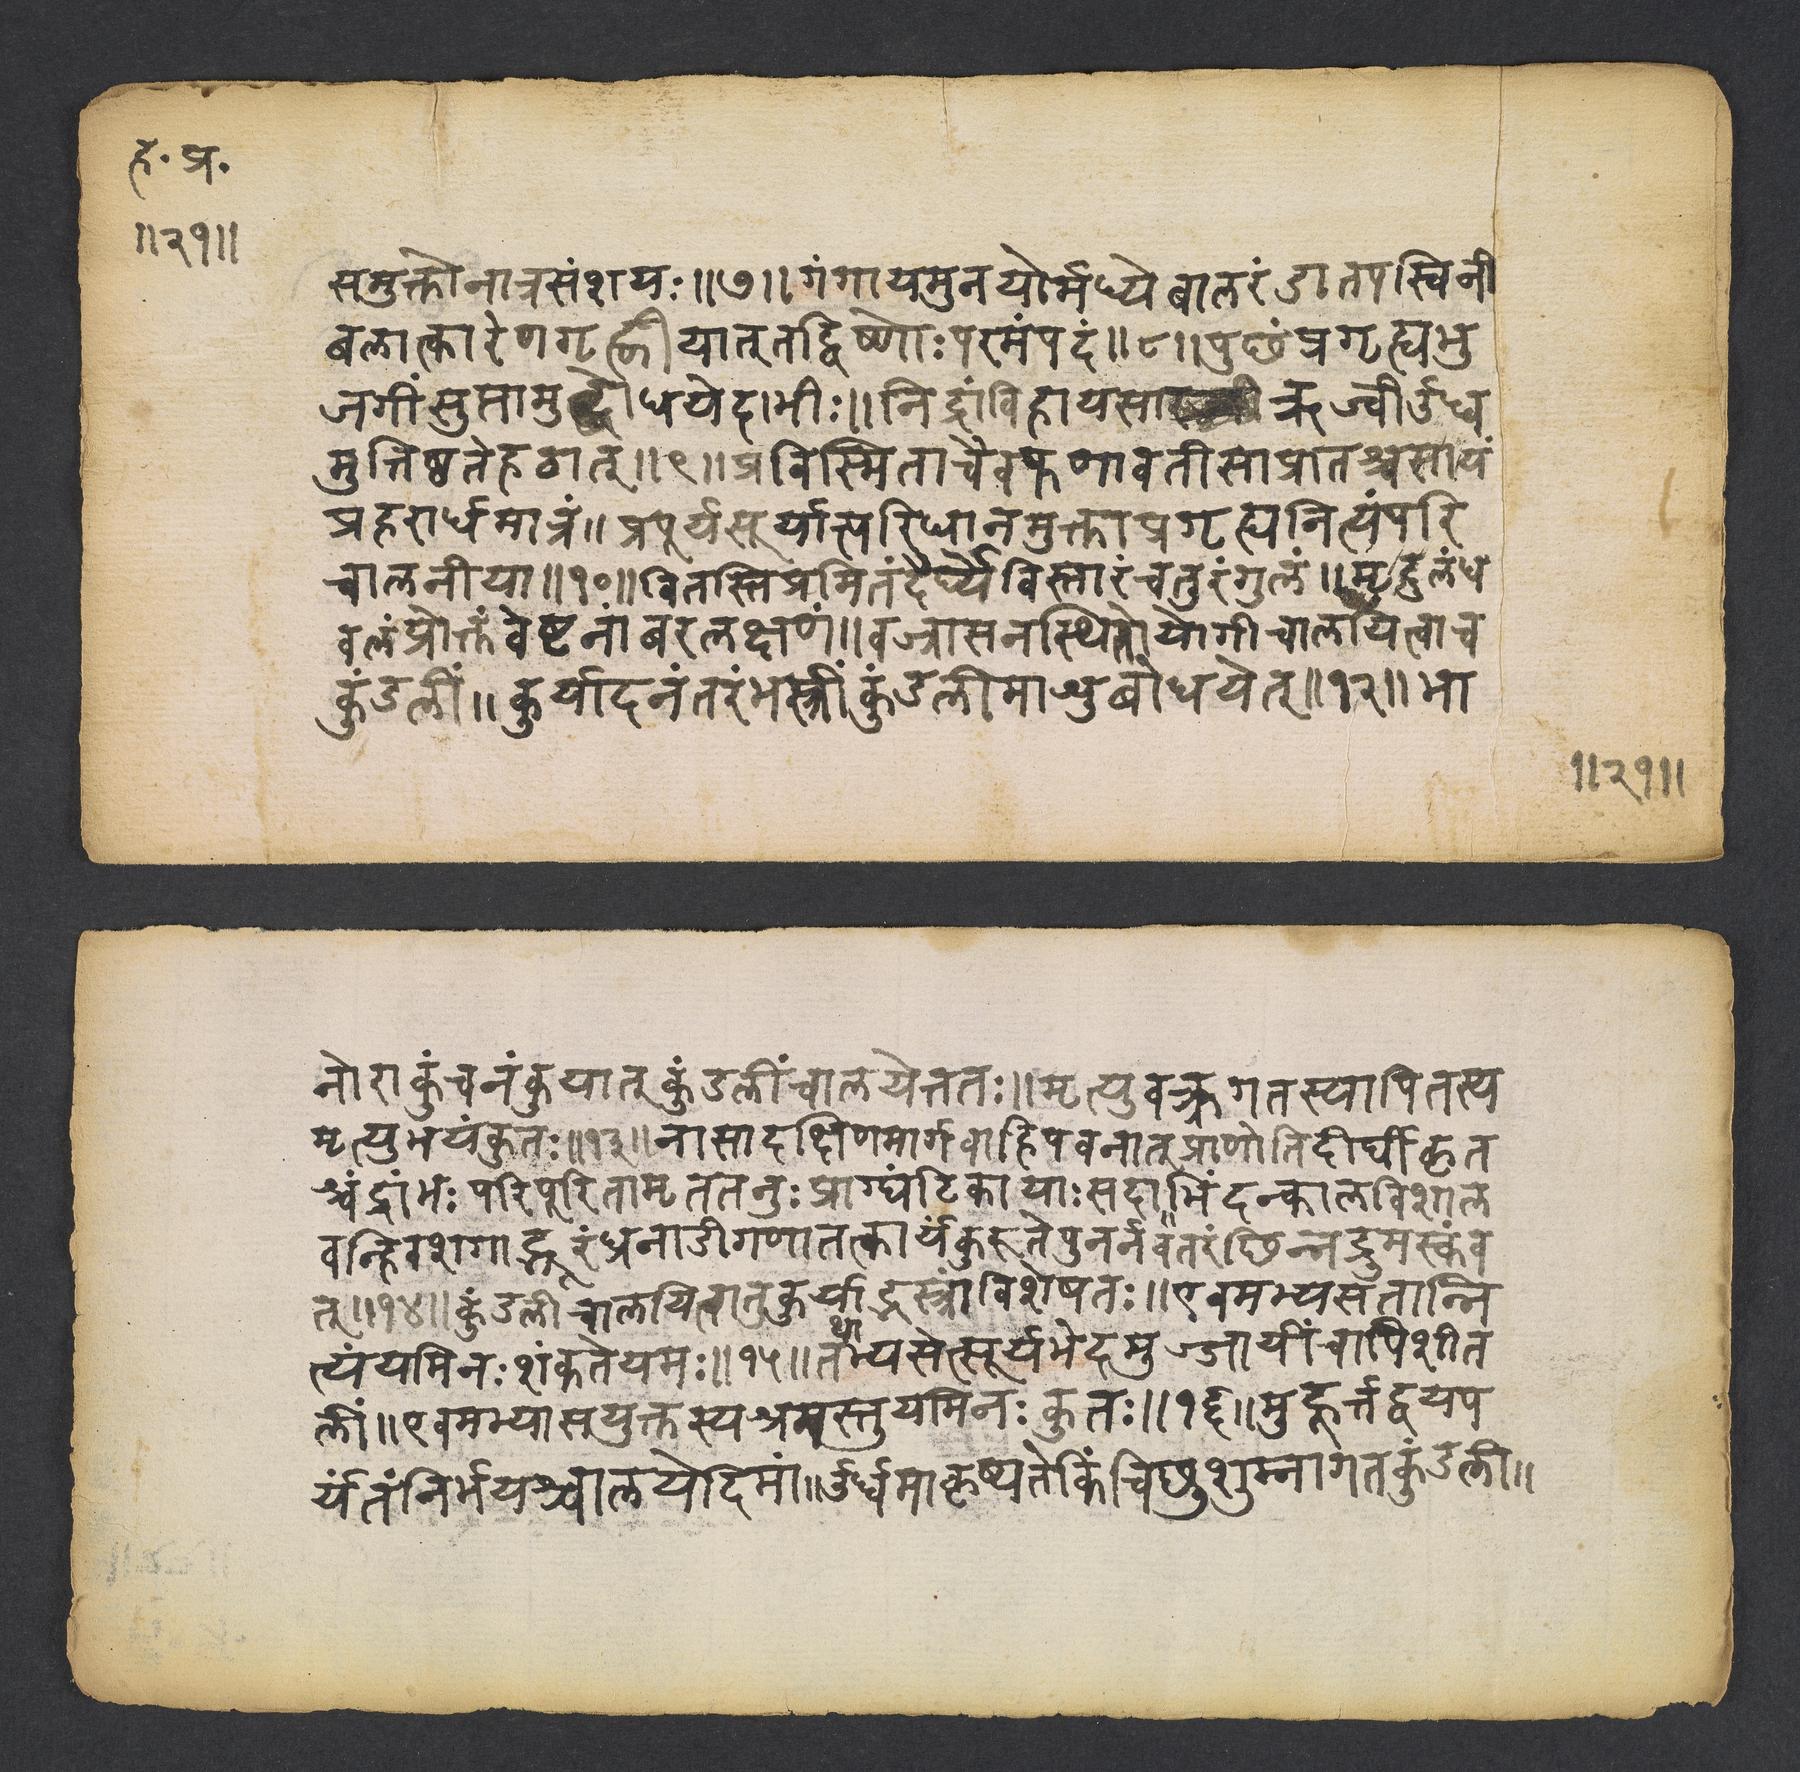 ह॰ प्र॰
॥२१॥
समुक्तोनात्रसंशयः॥७॥गंगायमुनयोर्मध्येबालरंडातपस्विनी
बलात्कारेणगृह्णीयात्तद्विष्णोःपरमंपदं॥८॥पुछंप्रगृह्यभु
जगींसुप्तामुद्बोधयेदाभीः॥निद्रांविहायसाऋज्वीर्उर्ध्व
मुत्तिष्ठतेहठात्॥९॥प्रविस्मिताचैवफणावतीसाप्रातश्चसायं
प्रहरार्धमात्रं॥प्रपूर्यसूर्यात्परिधानमुक्ताप्रगृह्यनित्यंपरि
चालनीया॥१०॥वितस्तिप्रमितंदैर्घ्यैविस्तारंचतुरंगुलं॥मृदुलंध
वलंप्रोक्तंवेष्टनांबरलक्षणं॥वज्रासनस्थितोयोगीचालयित्वाच
कुंडलीं॥कुर्यादनंतरंभस्त्रींकुंडलीमाश्रुबोधयेत्॥१२॥भा
॥२१॥
नोराकुंचनंकुयात्कुंडलींचालयेत्ततः॥मृत्युवक्त्रगतस्यापितस्य
मृत्युभयंकुतः॥१३॥नासादक्षिणमार्गवाहिपवनात्प्राणोतिदीर्घीकृत
श्चंद्रांभःपरिपूरितामृततनुःप्राग्घंटिकायाःसदाभिंदन्कालविशाल
वन्हिवशगाद्भूरंध्रनाडीगणातत्कार्यंकुरूतेपुनर्नवतरंछिन्नद्रुमस्कंव
त्॥१४॥कुंडलीचालयित्वातुकुर्याद्भस्त्रांविशेषतः॥एवमभ्यसतान्नि
त्यंयमिनःशंकतेयमः॥१५॥तथाभ्यसेत्सूर्यभेदमुज्जायींचापिशीत
लीं॥एवमभ्यासयुक्तस्यश्रमस्तुयमिनःकुतः॥१६॥मुहूर्त्तद्वयंप
र्यंतंनिर्भयश्चालयेदिमां॥र्उर्ध्वमाकृष्यतेकिंचिछुशुम्नागतकुंडली॥